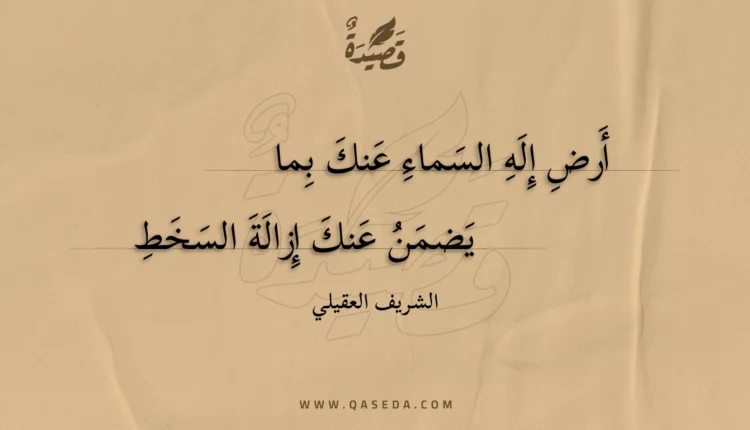 قَصِيْدَةٌ
أَرضِ إِلَهِ السَماءِ عَنكَ بِما
يَضمَنُ عَنكَ إِزالَةَ السَخَطِ
الشريف العقيلي
WWW.QASEDA.COM